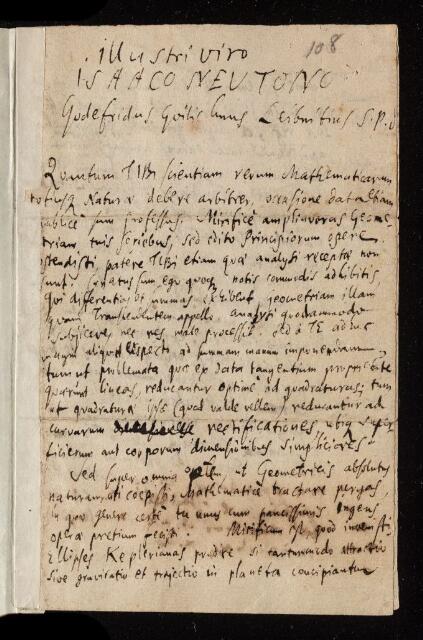 illustri viro 108
ISAACO NEUTONO
Godefridus Guilielmus Leibnitius S.P.D
Quantum TIBI scientiam rerum Mathematicarum
totiusque Naturae debere arbitrer, occasione data etiam
publice sum professus. Mirifice ampliaveras Geome-
triam tuis seriebus, sed edito Principiorum opere
ostendisti, patere TIBI etiam quae analysi receptae non
sunt. Conatus sum ego quoque notis commodis adhibitis
qui differentias et summas exhibent, geometriam illam
quam Transcendentem appello, analysi quodammodo
subjicere, nec res male processit. Sed a TE adhuc
magnum aliquid expecto ad summam manum imponendam,
tum ut problemata quae ex data tangentium proprietate
quaerunt lineas, reducantur optime ad quadraturas; tum
ut quadraturae ipsae (quod valde vellem) reducantur ad
curvarum rectificationes, ubique super
ficierum aut corporum dimensionibus simpliciores.
Sed super omnia ut Geometricis absolutus
naturam uti coepisti, Mathematice tractare pergas,
in quo genere certe tu unus cum paucissimis ingens
operae pretium fecisti. Mirificum est, quod invenisti
Ellipses Keplerianas prodire si tantummodo attractio
sive gravitatio et trajectio in planeta concipiantur